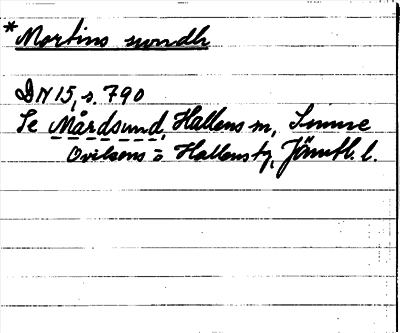 *Mortins sundh
DN 15, s. 790
Se Mårdsund, Hallens sn,
Ovikens o Hallens tg, Jämtl. l.